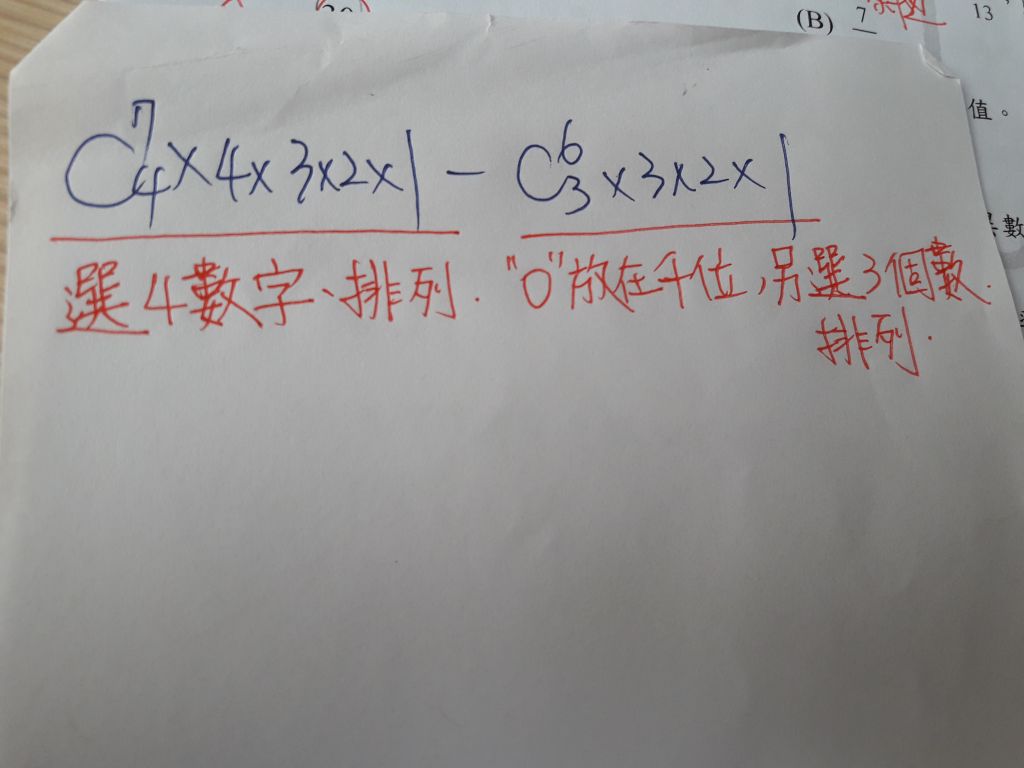 (B) 7 13
值。
數
C⁷₄×4×3×2×1 - C⁶₃×3×2×1
選4數字、排列. "0"放在千位,另選3個數.
排列.